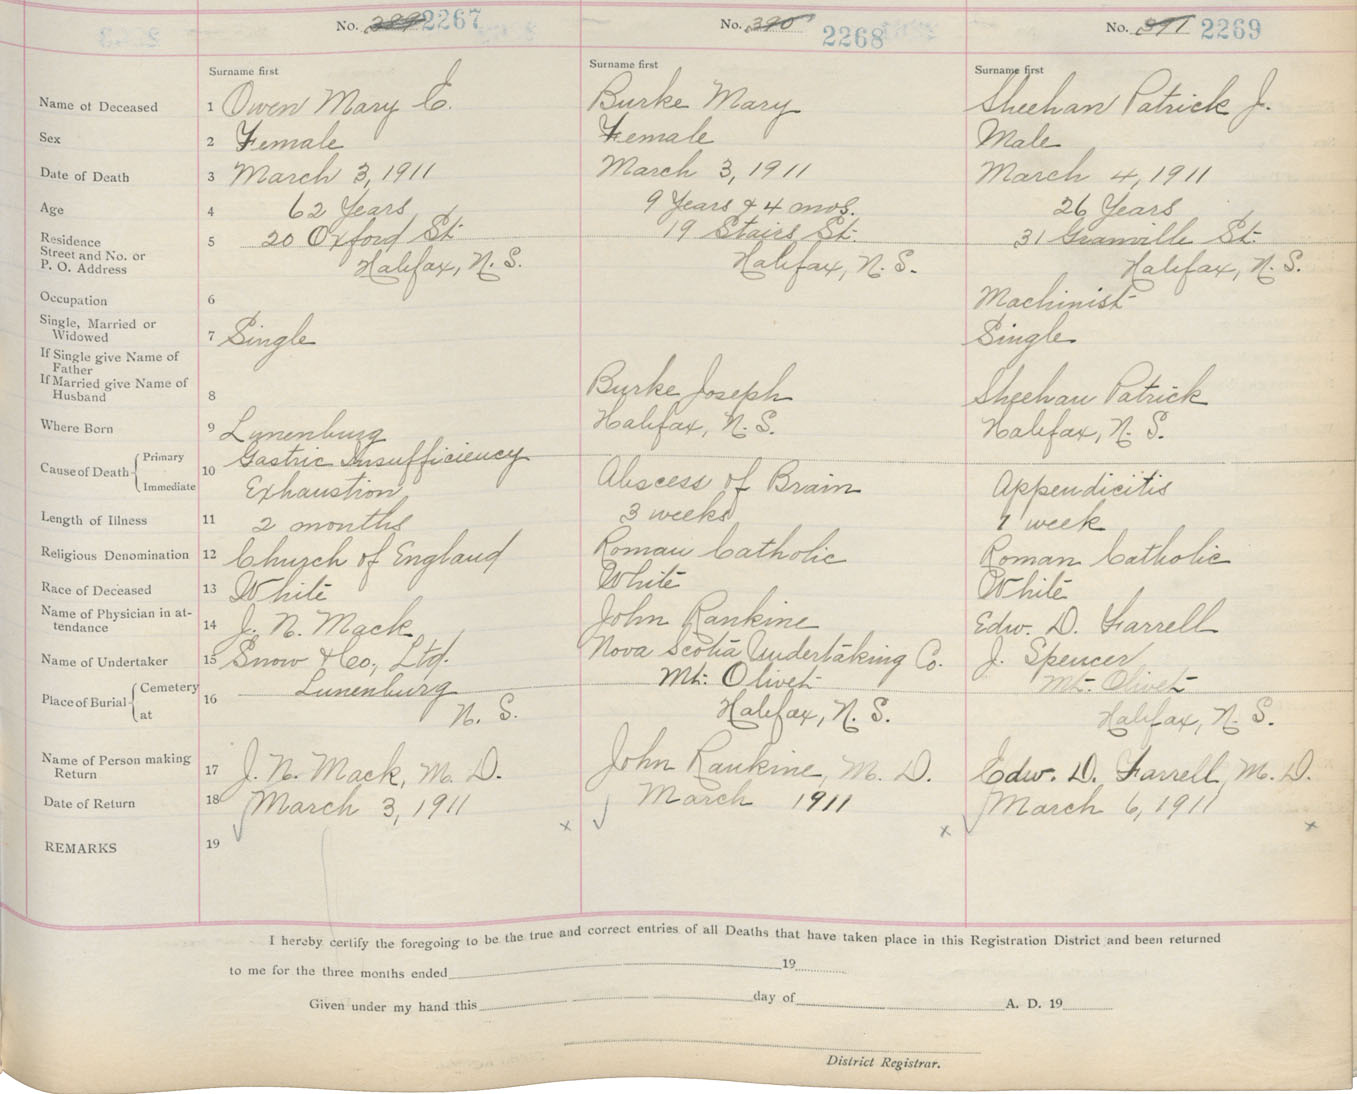 No. 389 2267 No. 390 2268 No. 391 2269
Surname first Surname first Surname first
Name of Deceased 1 Owen Mary E. Burke Mary Sheehan Patrick J.
Sex 2 Female Female Male
Date of Death 3 March 3, 1911 March 3, 1911 March 4, 1911
Age 4 62 Years 9 Years & 4 mos. 26 Years
Residence Street and No. or P. O. Address 5 20 Oxford St. 19 Stairs St. 31 Granville St.
Halifax, N. S. Halifax, N. S. Halifax, N. S.
Occupation 6 Machinist
Single, Married or Widowed 7 Single Single
If Single give Name of Father
If Married give Name of Husband 8 Burke Joseph Sheehan Patrick
Where Born 9 Lunenburg Halifax, N. S. Halifax, N. S.
Cause of Death Primary 10 Gastric Insufficiency
Immediate Exhaustion Abscess of Brain Appendicitis
Length of Illness 11 2 months 3 weeks 1 week
Religious Denomination 12 Church of England Roman Catholic Roman Catholic
Race of Deceased 13 White White White
Name of Physician in attendance 14 J. N. Mack John Rankine Edw. D. Farrell
Name of Undertaker 15 Snow & Co., Ltd. Nova Scotia Undertaking Co. J. Spencer
Place of Burial Cemetery 16 Lunenburg Mt. Olivet Mt. Olivet
at N. S. Halifax, N. S. Halifax, N. S.
Name of Person making Return 17 J. N. Mack, M. D. John Rankine, M. D. Edw. D. Farrell, M. D.
Date of Return 18 March 3, 1911 March 1911 March 6, 1911
REMARKS 19
I hereby certify the foregoing to be the true and correct entries of all Deaths that have taken place in this Registration District and been returned
to me for the three months ended 19
Given under my hand this day of A. D. 19
District Registrar.